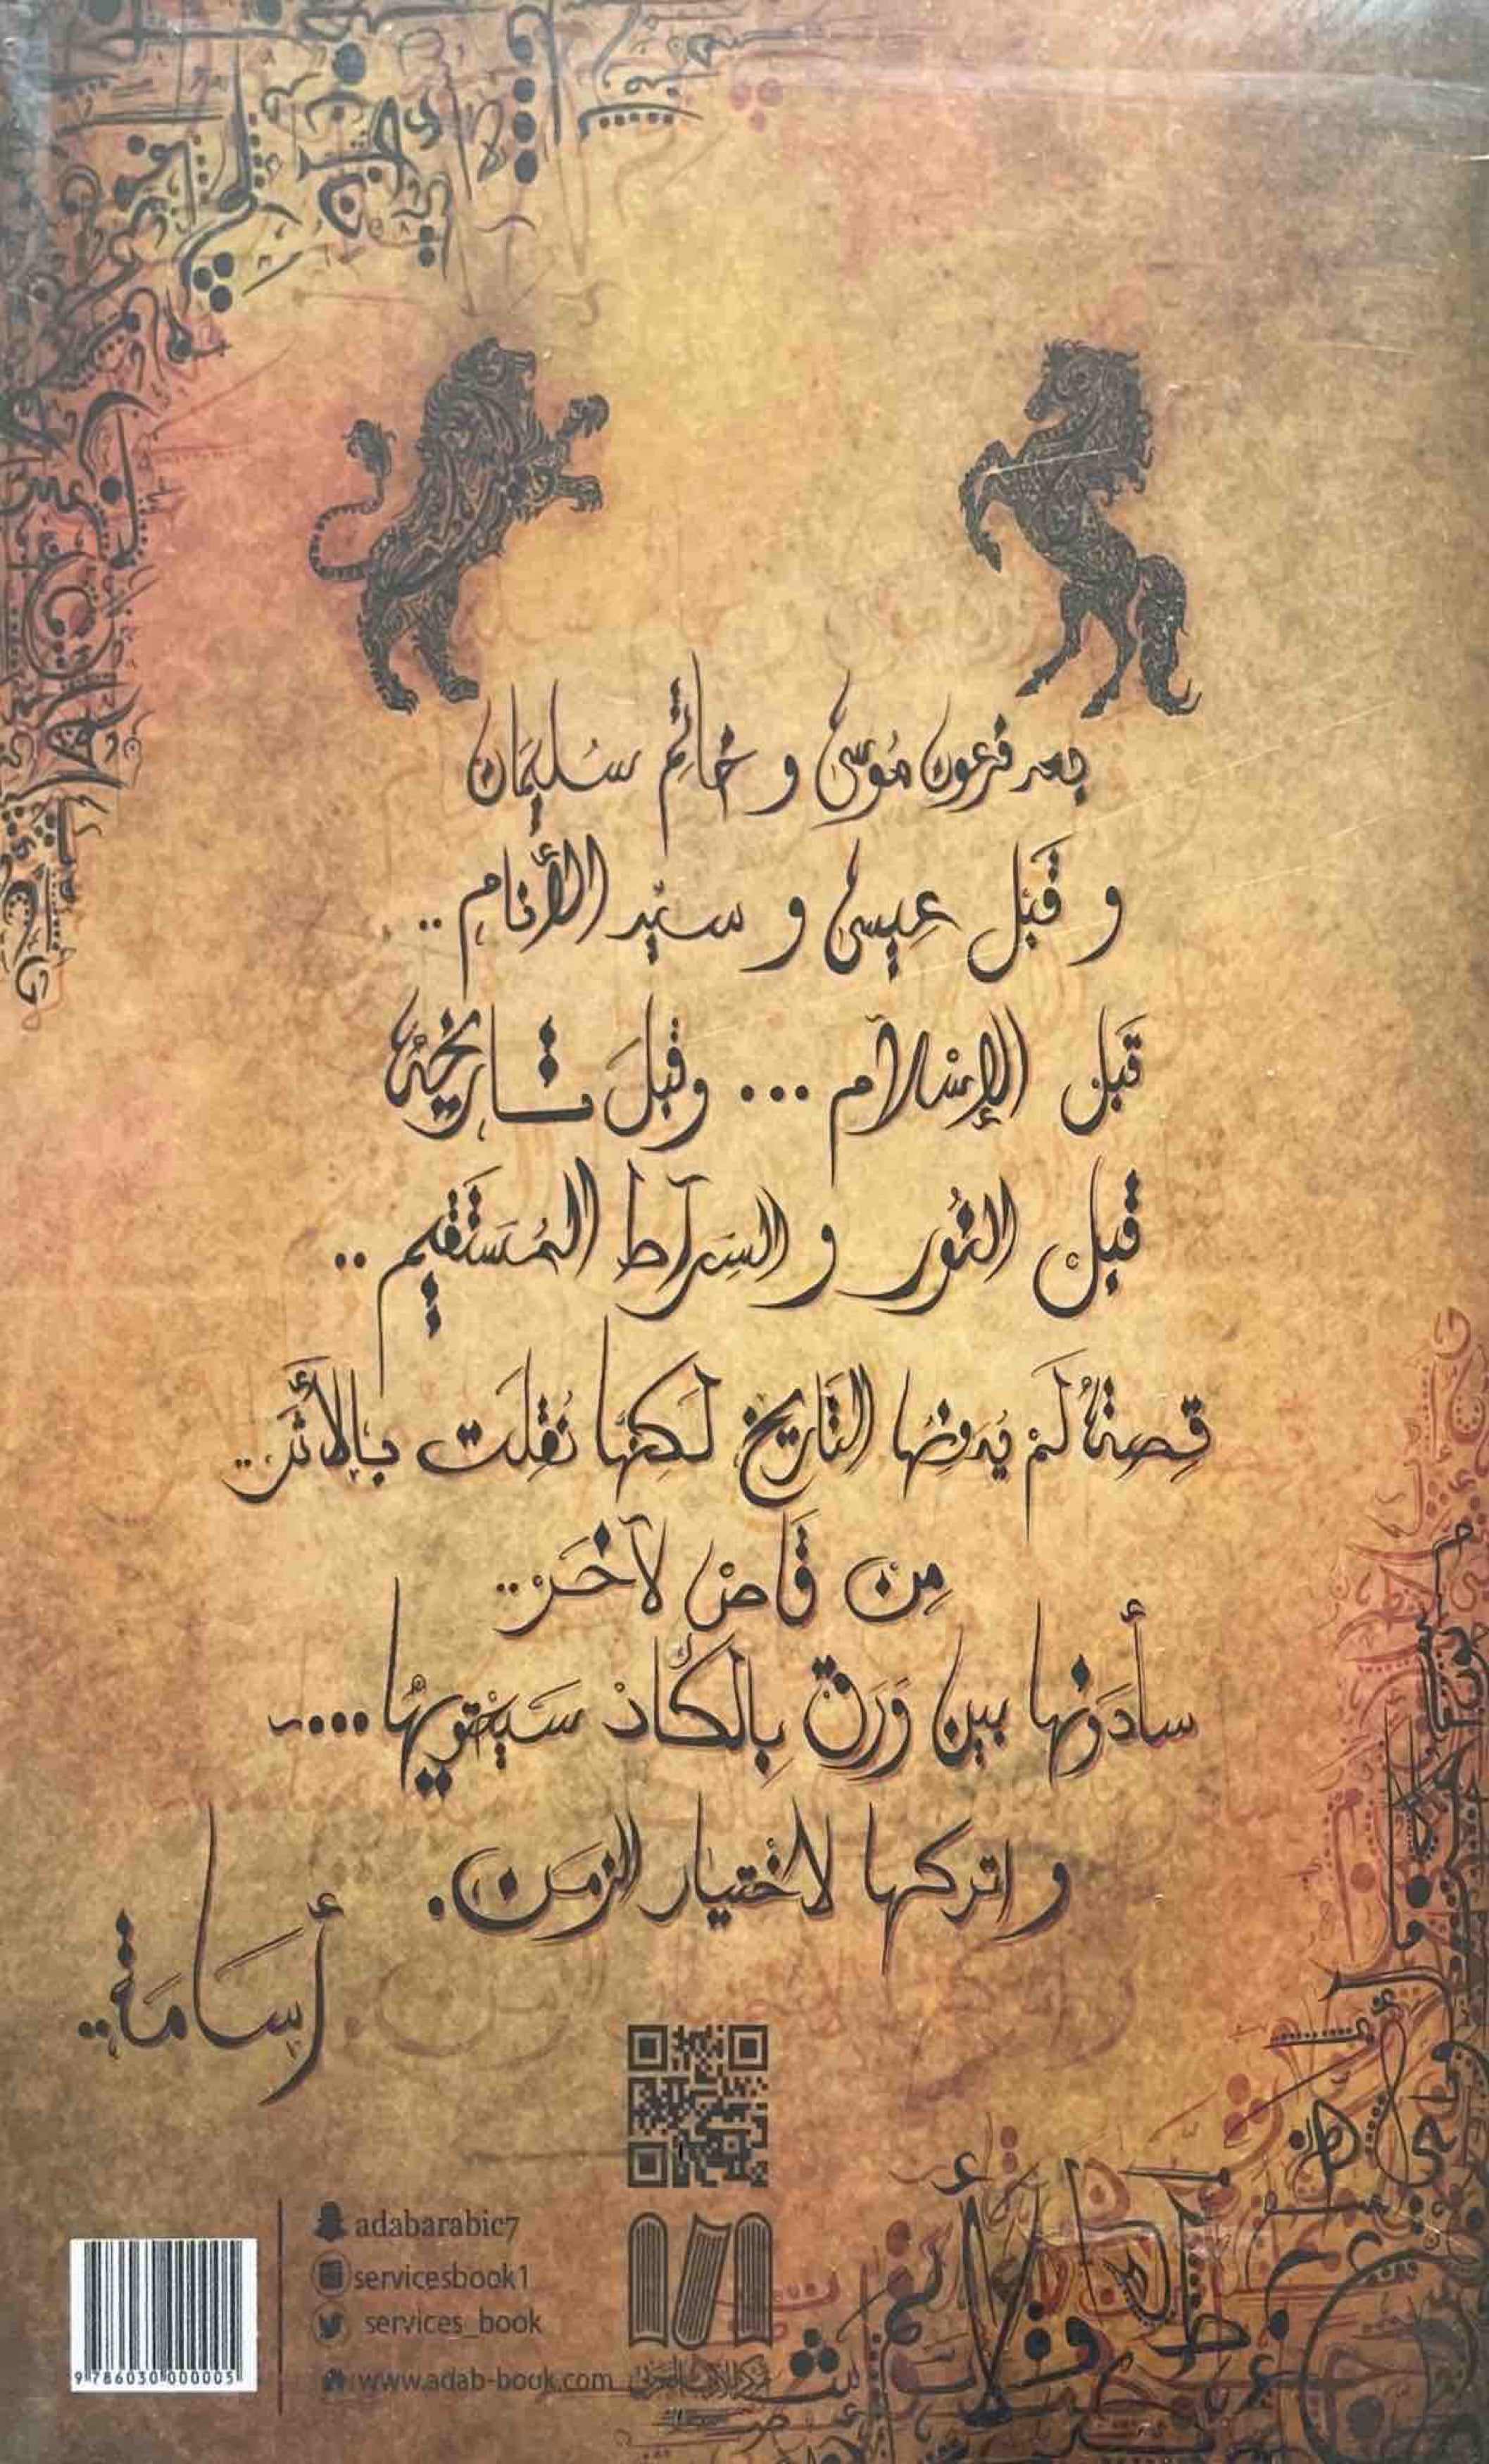 بعد فرعون مُوسىٰ و خاتِم سُليمَان
و قَبْل عِيسىٰ و سيّد الأنام ..
قَبل الإسْلام ... وقبلَ تاريخهُ
قبل النُور و السِرآط المُسَتَقيم ..
قِصةٌ لَمْ يُدونهَا التَاريخ لَكنهَا نُقِلَت بالأثَر..
مِنْ قَاصْ لآخَرْ..
سأدَونها بين وَرَق بِالكَادْ سَيحْتويهَا....
و اتركها لاختيار الزمَن.
أسَامَة..
adabarabic7
servicesbook1
services_book
www.adab-book.com
9 786030 000005